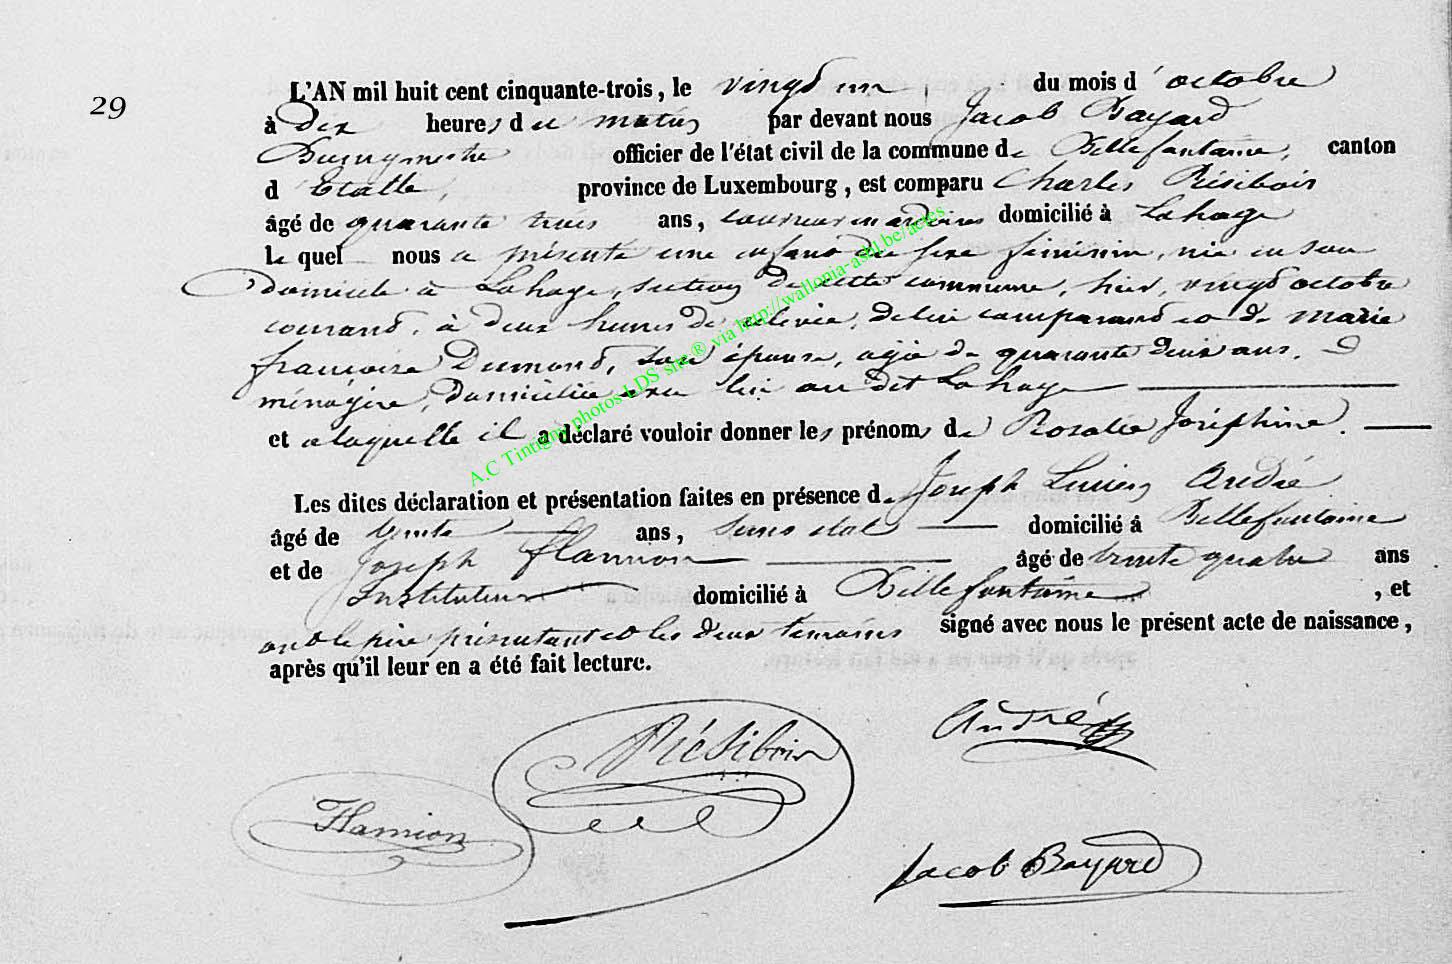 29
L'AN mil huit cent cinquante-trois, le vingt un du mois d'octobre
à Dix heures du matin par devant nous Jacob Bayard
Bourgmestre officier de l'état civil de la commune de Bellefontaine, canton
d'Etalle, province de Luxembourg, est comparu Charles Résibois
âgé de quarante trois ans, couvreur en ardoises domicilié à Lahage
Le quel nous a présenté une enfant du sexe féminin, née en son
Domicile à Lahage, section de cette commune, hier, vingt octobre
courant, à deux heures de relevée, de lui comparant et de marie
françoise Dumont, son épouse, agée de quarante deux ans,
ménagère, Domiciliée avec lui au dit Lahage
et a laquelle il a déclaré vouloir donner les prénoms de Rosalie Joséphine.
Les dites déclaration et présentation faites en présence de Joseph Lucien André
âgé de trente ans, sans état domicilié à Bellefontaine
et de Joseph flamion âgé de trente quatre ans
Instituteur domicilié à Bellefontaine, et
ont le père présentant et les deux temoins signé avec nous le présent acte de naissance,
après qu'il leur en a été fait lecture.
Résibois
André
Flamion
Jacob Bayard
A.C Tintigny photos LDS site ® via http://wallonia-asbl.be/actes